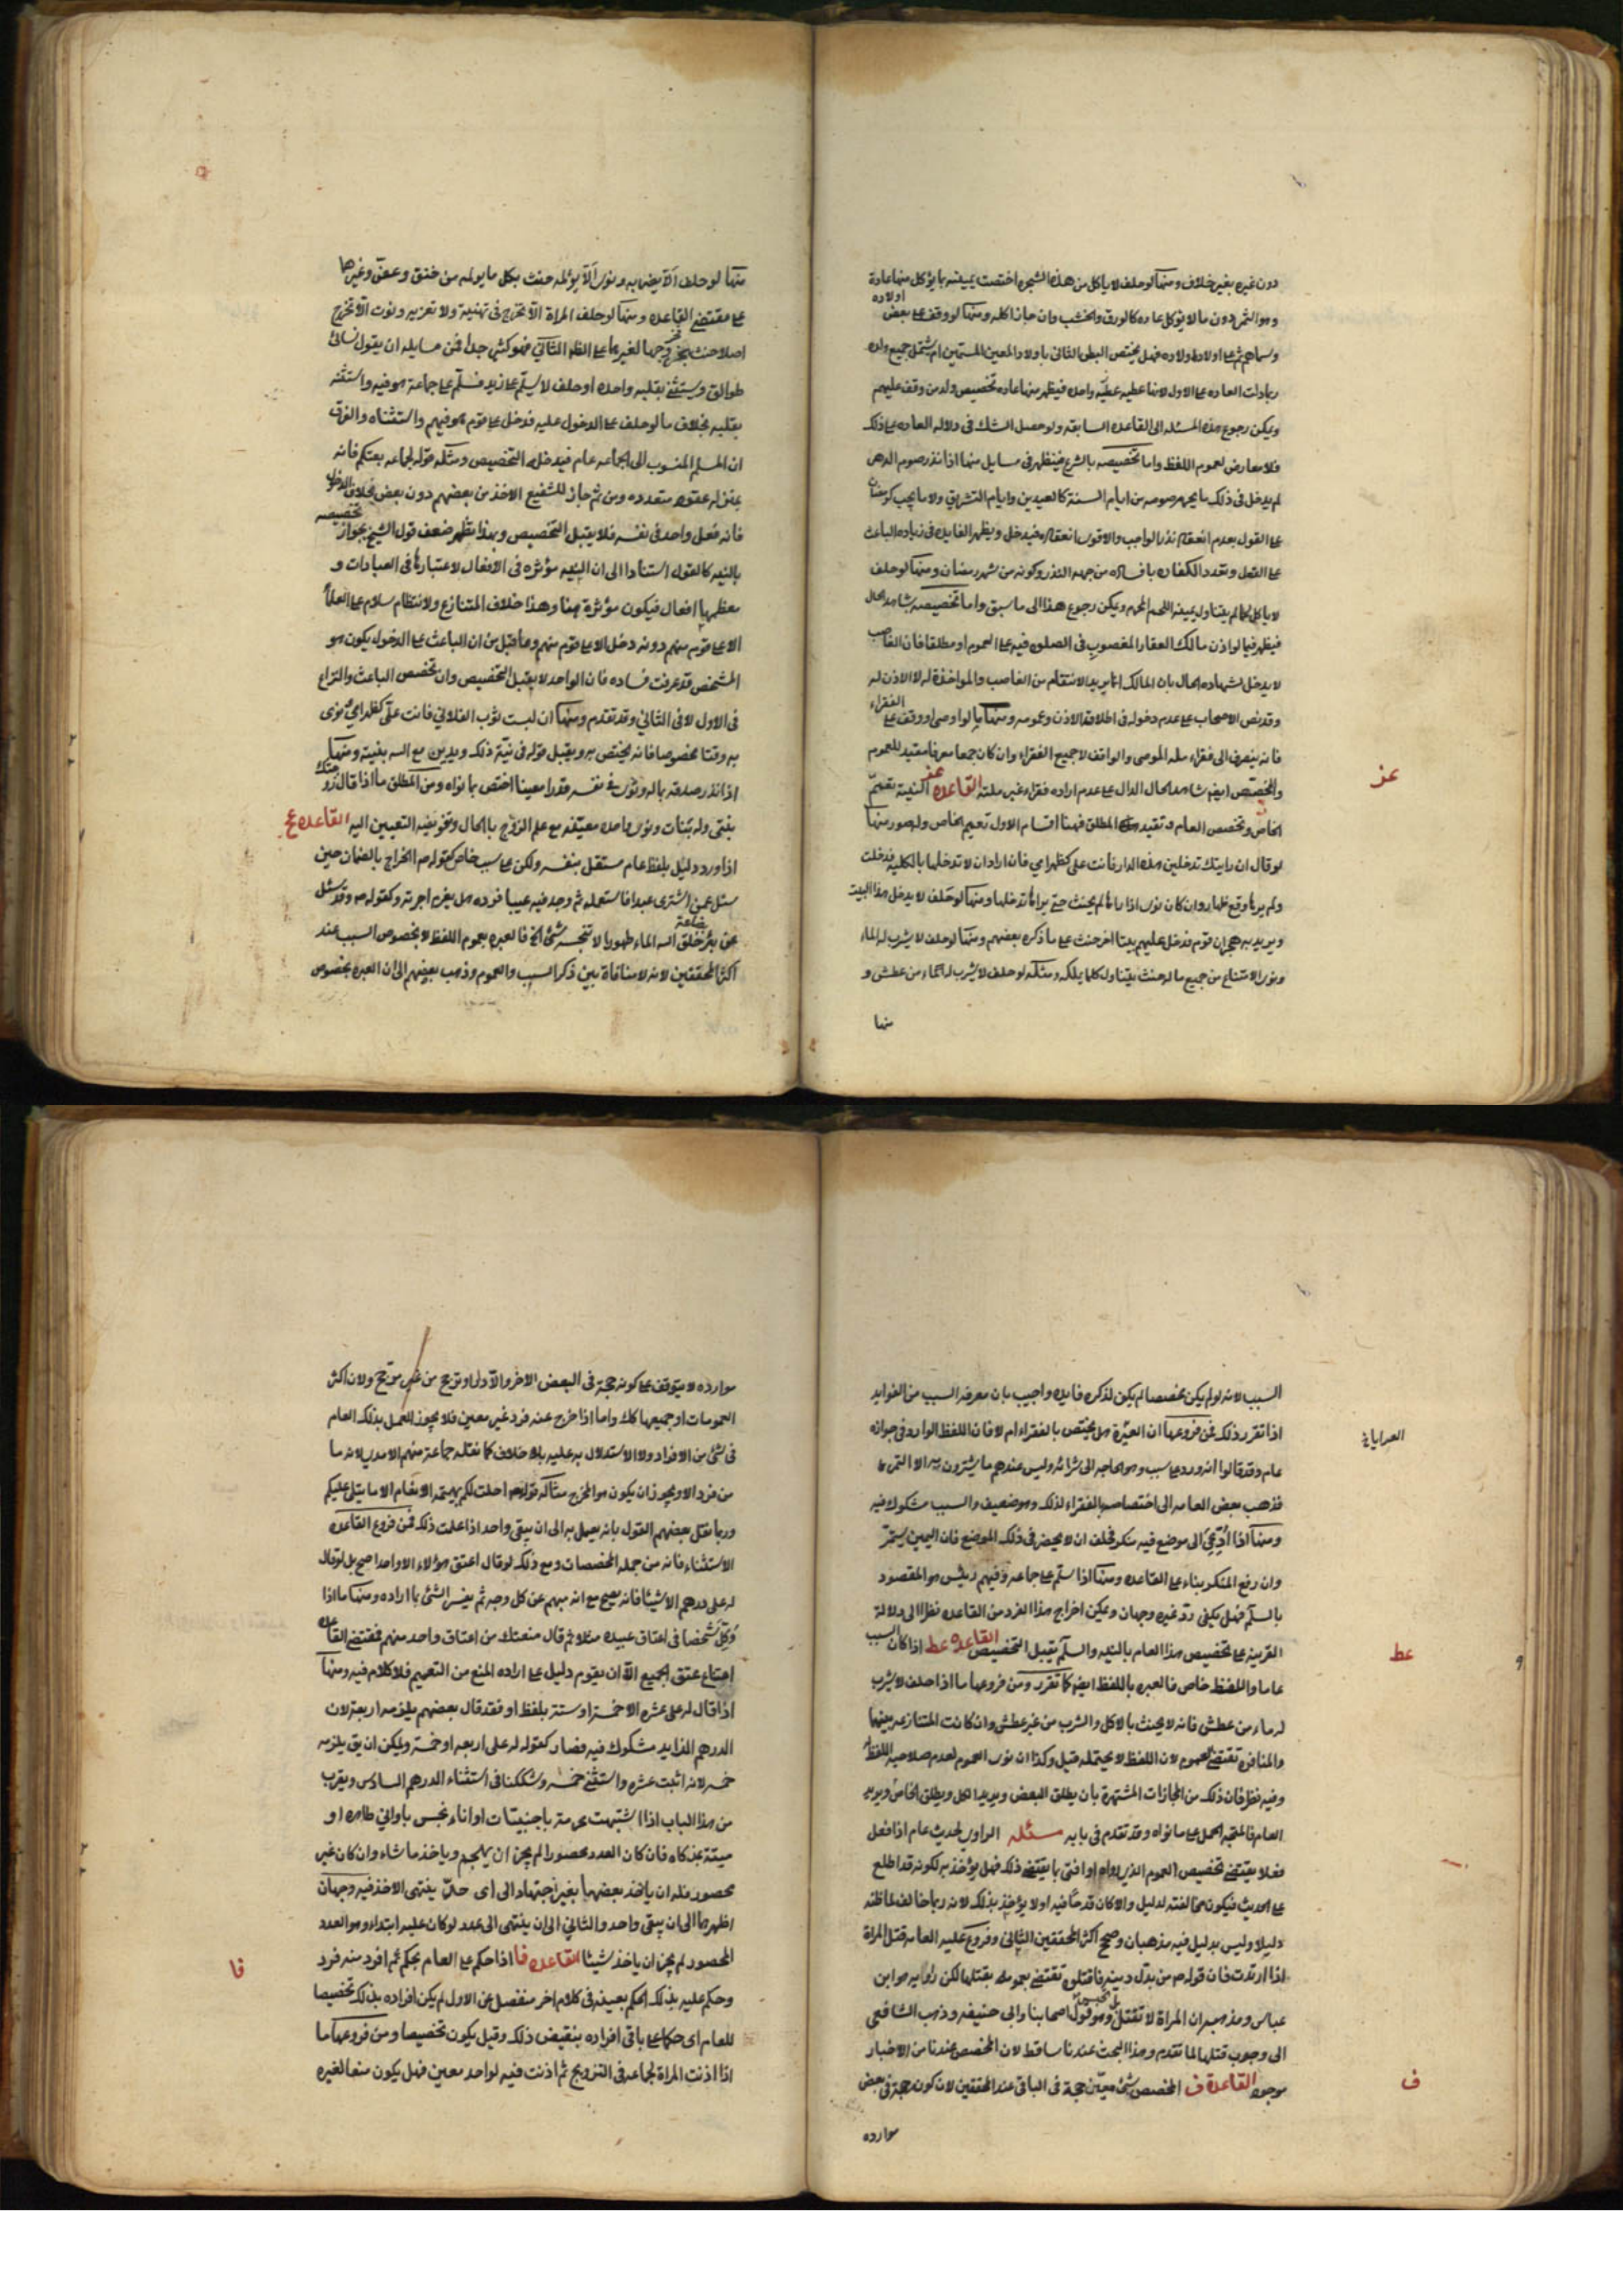 دون غيره بغير خلاف ومنها لو حلف لا ياكل من هذه الشجره اختصت يمينه بما يؤكل منها عادة
وهو الثمر دون ما لا يؤكل عاده كالورق والخشب وان جاز اكله ومنها لو وقف على بعض اولاده
وسماهم ثم على اولاد اولاده فهل يختص البطن الثانى باولاد المعين المسمين ام يشمل جميع ولده
ربما دلت العاده على الاول لانها عطيه عطيّه واحده فيظهر منها عاده تخصيص ولد من وقف عليهم
ويمكن رجوع هذه المسئله الى القاعده السابقه ولو حصل الشك فى دلاله العاده على ذلك
فلا معارض لعموم اللفظ واما تخصيصه بالشرع فيظهر فى مسايل منها اذا نذر صوم الدهر
لم يدخل فى ذلك ما يحرم صومه من ايام السنة كالعيدين وايام التشريق ولا ما يجب كرمضان
على القول بعدم انعقاد نذر الواجب والاقوى انعقاده فيدخل ويظهر الفايده فى زياده الباعث
على الفعل وتعدد الكفاره بافساده من جهه النذر وكونه من شهر رمضان ومنها لو حلف
لا ياكل لحما لم يتناول يمينه اللحم المحرم ويمكن رجوع هذا الى ما سبق واما تخصيصه بشاهد الحال
فيظهر فيما لو اذن مالك العقار المغصوب فى الصلوه فيه على العموم او مطلقا فان الغاصب
لا يدخل لشهاده الحال بان المالك انما يريد الانتقام من الغاصب والمواخذة له لا الاذن له
وقد نص الاصحاب على عدم دخوله فى اطلاق الاذن وعمومه ومنها ما لو اوصى او وقف على الفقراء
فانه ينصرف الى فقراء مله الموصى والواقف لا جميع الفقراء وان كان جمعا معرفا مفيد للعموم
والمخصص ايضا شاهد الحال الدال على عدم اراده فقراء غير ملته القاعده عز النية تعمّ
الخاص وتخصص العام وتقيد المطلق فهنا اقسام الاول تعميم الخاص وله صور منها
لو قال ان رايتك تدخلين هذه الدار فانت على كظهر امى فان اراد ان لا تدخلها بالكليه فدخلت
ولم يرها وقع ظهاره وان كان نوى اذا راها لم يحنث حتى يراها تدخلها ومنها لو حلف لا يدخل هذا البيت
ويريد به هجران قوم فدخل عليهم بيتا اخر حنث على ما ذكره بعضهم ومنها لو حلف لا يشرب له الماء
ونوى الامتناع من جميع ماله حنث بتناول كلما يملكه ومثله لو حلف لا يشرب له الماء من عطش و
منها
عز
منها لو حلف الاّ يضربه ونوى الاّ يؤلمه حنث بكل ما يولمه من خنق وعض وغيرها
على مقتضى القاعده ومنها لو حلف المراة الاّ تخرج فى تهنية ولا تعزيه ونوت الاّ تخرج
اصلا حنث بخروجها لغيرهما على الثانى فهو كثير جدا فمن مسايله ان يقول نسائى
طوالق ويستثنى بقلبه واحده او حلف لا يسلّم على زيد فسلّم على جماعة هو فيه واستثنه
بقلبه بخلاف ما لو حلف على الدخول عليه فدخل على قوم هو فيهم واستثناه والفرق
ان السلم المنسوب الى الجماعه عام فيدخله التخصيص ومثله قوله لجماعه بعتكم فانه
بمنزله عقود متعدده ومن ثم جاز للشفيع الاخذ من بعضهم دون بعض بخلاف الدخول
فانه فعل واحد فى نفسه فلا يقبل التخصيص وبهذا يظهر ضعف قول الشيخ بجواز تخصيصه
بالنيه كالقول استنادا الى ان النيه مؤثره فى الافعال لاعتبارها فى العبادات و
معظمها افعال فيكون مؤثرة هنا وهذا خلاف المتنازع ولانتظام سلام على العلماء
الا على قوم منهم دونه دخل الا على قوم منهم وما قيل من ان الباعث على الدخول يكون هو
المشخص قد عرفت فساده فان الواحد لا يقبل التخصيص وان تخصص الباعث والنزاع
فى الاول لا فى الثاني وقد تقدم ومنها ان لبست ثوب الفلاني فانت علىّ كظهر امى ونوى
به وقتا مخصوصا فانه يختص به ويقبل قوله فى نيّة ذلك ويدين مع الله بنيته ومنها
اذا نذر صدقه بماله ونوى فى نفسه قدرا معينا اختص بما نواه ومن المطلق ما اذا قال زوجتك
بنتى وله بنات ونوى واحده معيّنه مع علم الزوج بالحال وتفويضه التعيين اليه القاعده عح
اذا ورد دليل بلفظ عام مستقل بنفسه ولكن على سبب خاص كقوله ص الخراج بالضمان حين
سئل عمن اشترى عبدا فاستعمله ثم وجد فيه عيبا فرده هل يغرم اجرته وكقوله ص وقد سئل
عن بئر بضاعة خلق الله الماء طهورا لا ينجسه شئ الخ فالعبره بعموم اللفظ لا بخصوص السبب عند
اكثر المحققين لانه لا منافاة بين ذكر السبب والعموم وذهب بعضهم الى ان العبره بخصوص
السبب لانه لو لم يكن مخصصا لم يكن لذكره فايده واجيب بان معرفه السبب من الفوايد
اذا تقرر ذلك فمن فروعها ان العريّة هل يختص بالفقراء ام لا فان اللفظ الوارد فى جوازه
عام وقد قالوا انه ورد على سبب وهو الحاجه الى شرائه وليس عندهم ما يشترون به الا التمر
فذهب بعض العامه الى اختصاصه بالفقراء لذلك وهو ضعيف والسبب مشكوك فيه
ومنها اذا دُعِيَ الى موضع فيه منكر فحلف ان لا يحضر فى ذلك الموضع فان اليمين يستمرّ
وان رفع المنكر بناء على القاعده ومنها اذا سلم على جماعه وفيهم رئيس هو المقصود
بالسلم فهل يكفى ردّ غيره وجهان ويمكن اخراج هذا الفرد من القاعده نظرا الى دلالة
القرينه على تخصيص هذا العام بالنيه والسلم يقبل التخصيص القاعده عط اذا كان السبب
عاما واللفظ خاص فالعبره باللفظ ايضا كما تقرر ومن فروعها ما اذا حلف لا يشرب
له ماء من عطش فانه لا يحنث بالاكل والشرب من غير عطش وان كانت المنازعه بينهما
والمنافره تقتضى العموم لان اللفظ لا يحتمله قيل وكذا ان نوى العموم لعدم صلاحيه اللفظ
وفيه نظر فان ذلك من المجازات المشتهرة بان يطلق البعض ويريد الكل ويطلق الخاص ويريد
العام فالمتجه الحمل على ما نواه وقد تقدم فى بابه مسئله الراوى لحديث عام اذا فعل
فعلا يقتضى تخصيص العموم الذى رواه او افتى بما يقتضى ذلك فهل يؤخذ به لكونه قد اطلع
على الحديث فيكون مخالفته لدليل والا كان قدحا فيه او لا يؤخذ بذلك لانه ربما خالف لما ظنه
دليلا وليس بدليل فيه مذهبان وصحح اكثر المحققين الثاني وفروع عليه العامه قتل المراة
اذا ارتدت فان قوله ص من بدّل دينه فاقتلوه تقتضى بعمومه بقتلها لكن راويه هو ابن
عباس ومذهبه ان المراة لا تقتل بل تحبس وهو قول اصحابنا وابى حنيفه وذهب الشافعى
الى وجوب قتلها لما تقدم وهذا البحث عندنا ساقط لان المخصص عندنا من الاخبار
موجود القاعدة ف المخصص بشئ معيّن حجة فى الباقى عند المحققين لان كونه حجة فى بعض
موارده
العرايا
عط
ف
موارده لا يتوقف على كونه حجة فى البعض الاخر والاّ دار او ترجح من غير مرجح ولان اكثر
العمومات او جميعها كك واما اذا خرج عنه فرد غير معين فلا يجوز العمل بذلك العام
فى شئ من الافراد ولا الاستدلال به عليه بلا خلاف كما نقله جماعة منهم الامدى لانه ما
من فرد الا ويجوز ان يكون هو المخرج مثاله قوله تعالى احلت لكم بهيمة الانعام الا ما يتلى عليكم
وربما نقل بعضهم القول بانه يعمل به الى ان يبقى واحد اذا علمت ذلك فمن فروع القاعده
الاستثناء فانه من جمله المخصصات ومع ذلك لو قال اعتق هؤلاء الا واحدا صح بل لو قال
له على درهم الا شيئا فانه يصح مع انه مبهم عن كل وجه ثم يفسر الشئ بما اراده ومنها ما اذا
وكّل شخصا فى اعتاق عبيده مثلا ثم قال منعتك من اعتاق واحد منهم فمقتضى القاعده
امتناع عتق الجميع الاّ ان يقوم دليل على اراده المنع من التعميم فلا كلام فيه ومنها
اذا قال له على عشره الا خمسة او ستة بلفظ او فقد قال بعضهم يلزمه اربعة لان
الدرهم الزايد مشكوك فيه فصار كقوله له على اربعه او خمسة ويمكن ان يق يلزمه
خمسه لانه اثبت عشره واستثنى خمسه وشككنا فى استثناء الدرهم السادس ويقرب
من هذا الباب اذا اشتبهت محرمة باجنبيات او اناء نجس باواني طاهره او
ميتة بمذكاه فان كان العدد محصورا لم يجز ان يهجم وياخذ ما شاء وان كان غير
محصور فله ان ياخذ بعضها بغير اجتهاد الى اى حدّ ينتهى الاخذ فيه وجهان
اظهرهما الى ان يبقى واحد والثاني الى ان ينتهى الى عدد لو كان عليه ابتداء وهو العدد
المحصور لم يجز ان ياخذ شيئا القاعده فا اذا حكم على العام بحكم ثم افرد منه فرد
وحكم عليه بذلك الحكم بعينه فى كلام اخر منفصل عن الاول لم يكن افراده بذلك تخصيصا
للعام اى حكما على باقى افراده بنقيض ذلك وقيل يكون تخصيصا ومن فروعها ما
اذا اذنت المراة لجماعه فى التزويج ثم اذنت فيه لواحد معين فهل يكون منعا لغيره
فا